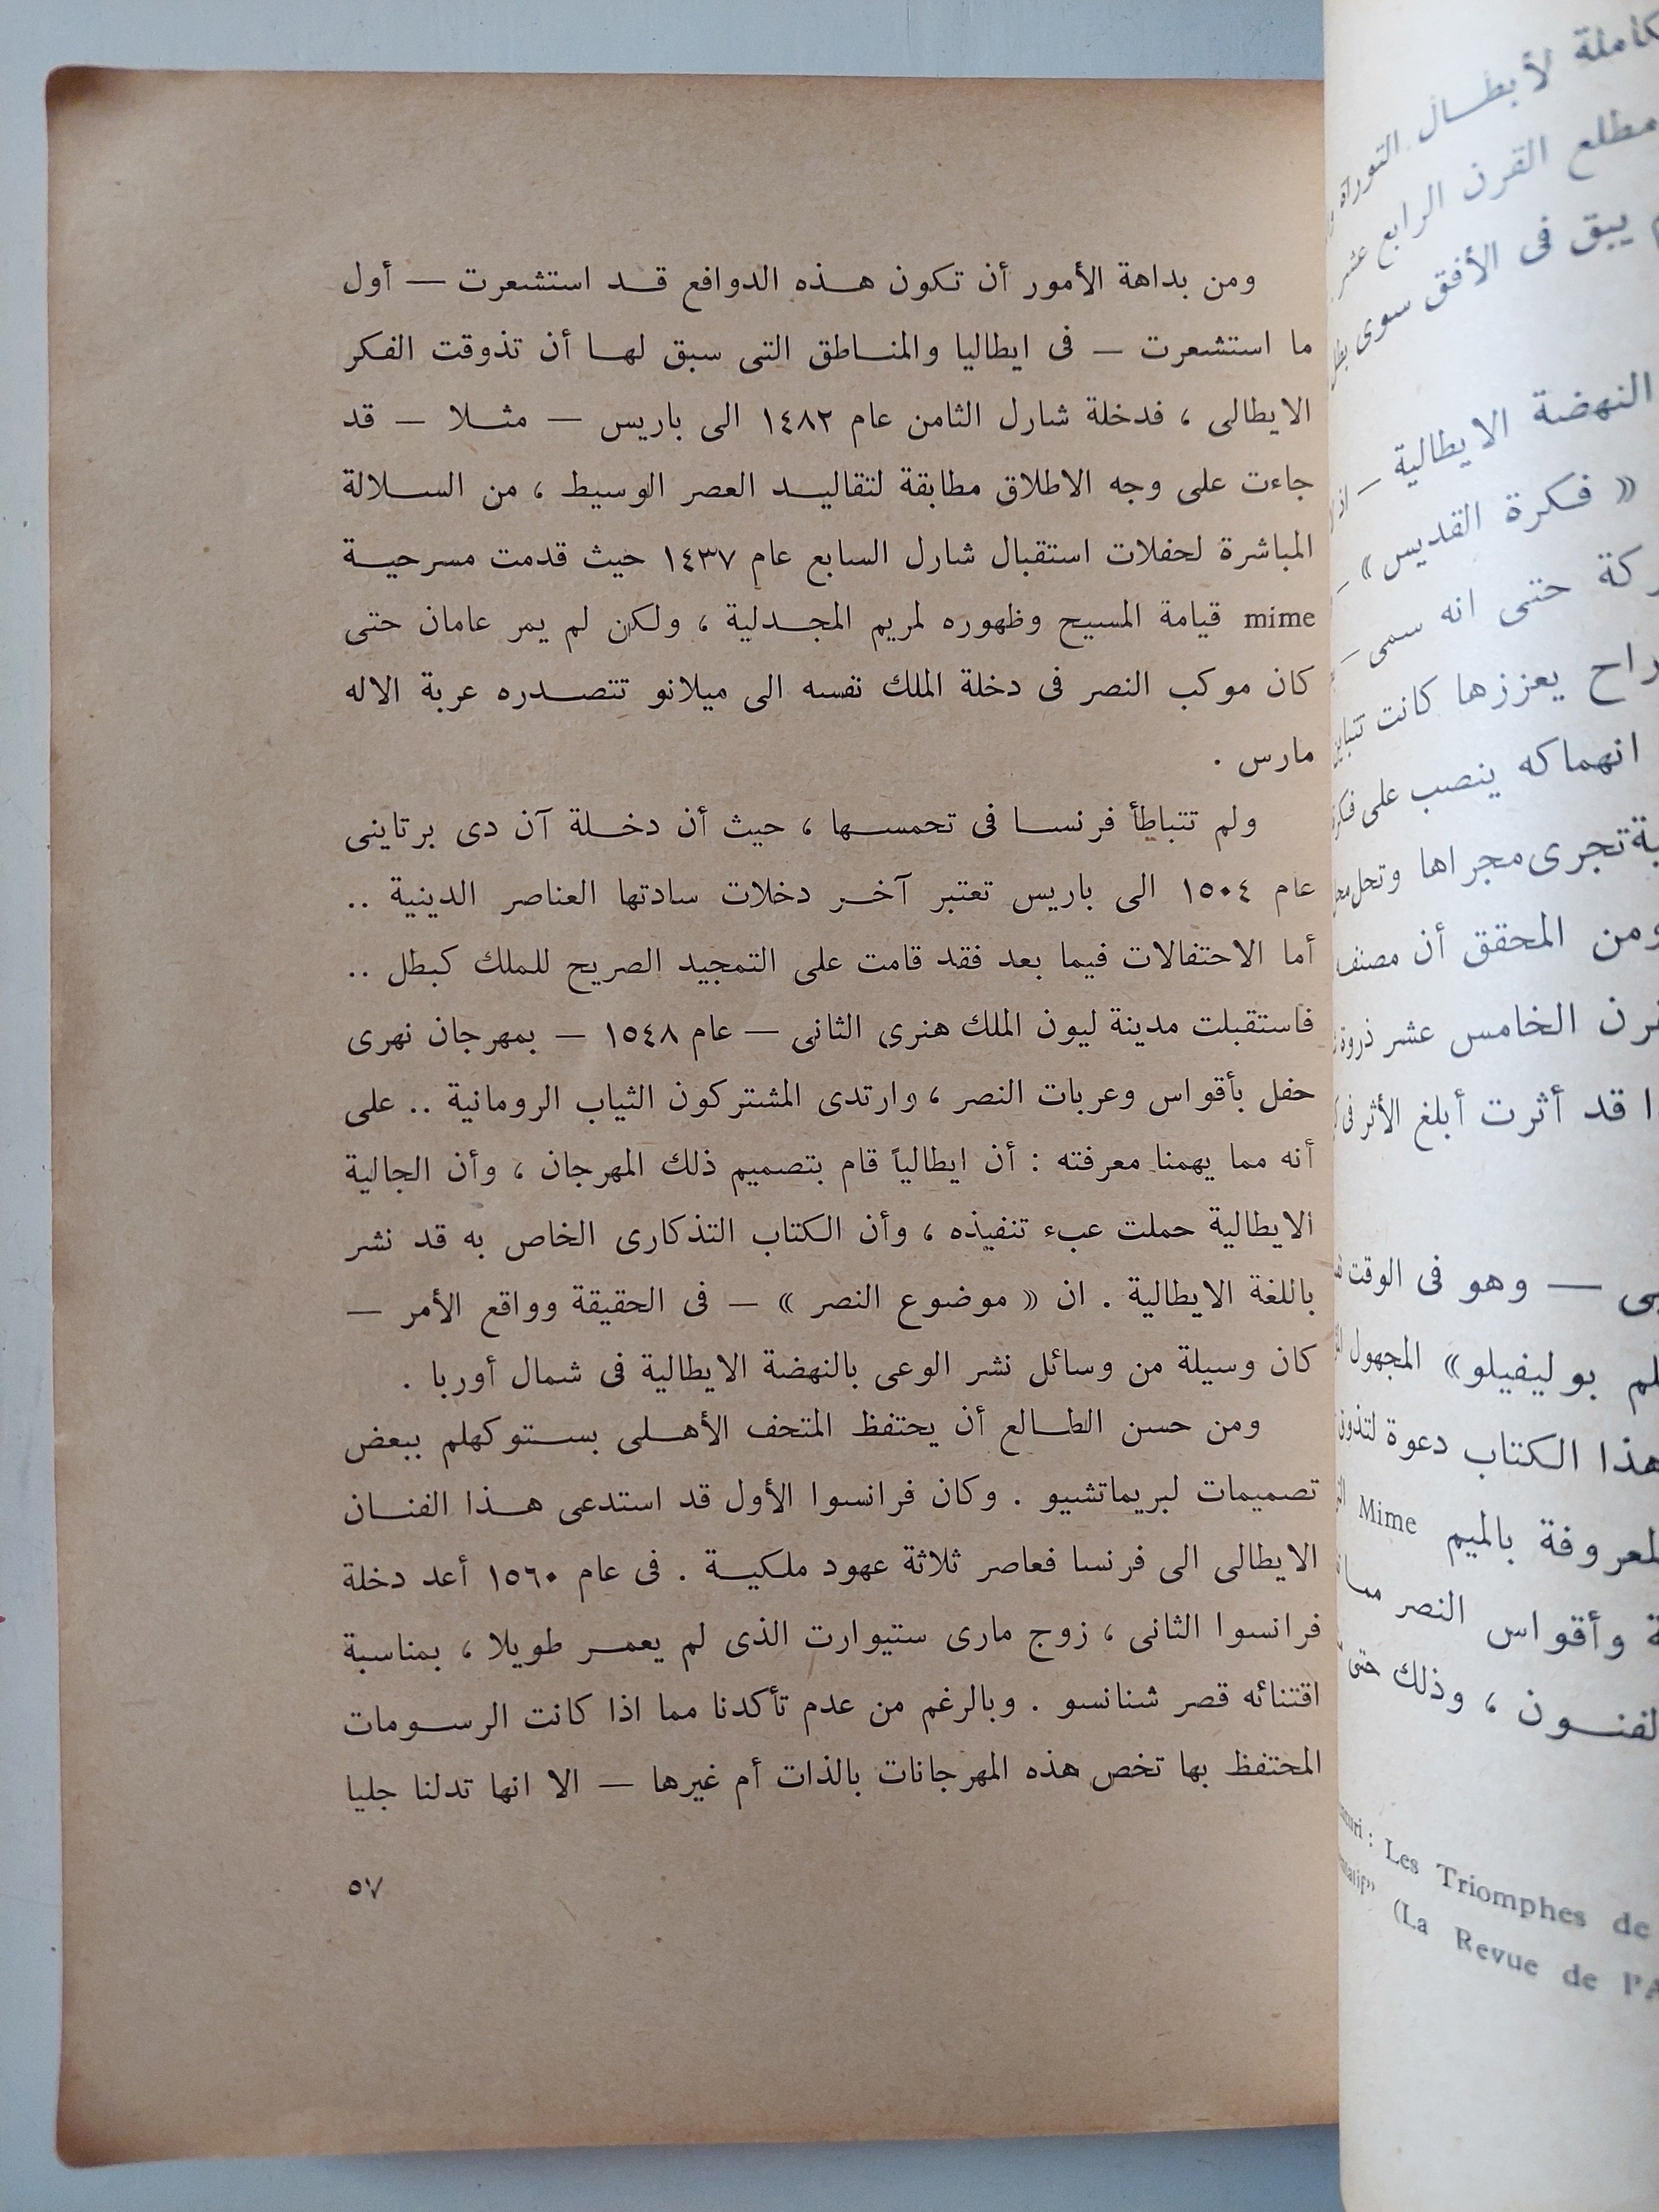 ومن بداهة الأمور أن تكون هذه الدوافع قد استشعرت — أول
ما استشعرت — فى ايطاليا والمناطق التى سبق لها أن تذوقت الفكر
الايطالى ، فدخلة شارل الثامن عام ١٤٨٢ الى باريس — مثلا — قد
جاءت على وجه الاطلاق مطابقة لتقاليد العصر الوسيط ، من السلالة
المباشرة لحفلات استقبال شارل السابع عام ١٤٣٧ حيث قدمت مسرحية
mime قيامة المسيح وظهوره لمريم المجدلية ، ولكن لم يمر عامان حتى
كان موكب النصر فى دخلة الملك نفسه الى ميلانو تتصدره عربة الاله
مارس .
ولم تتباطأ فرنسا فى تحمسها ، حيث أن دخلة آن دى برتاينى
عام ١٥٠٤ الى باريس تعتبر آخر دخلات سادتها العناصر الدينية ..
أما الاحتفالات فيما بعد فقد قامت على التمجيد الصريح للملك كبطل ..
فاستقبلت مدينة ليون الملك هنرى الثانى — عام ١٥٤٨ — بمهرجان نهرى
حفل بأقواس وعربات النصر ، وارتدى المشتركون الثياب الرومانية .. على
أنه مما يهمنا معرفته : أن ايطالياً قام بتصميم ذلك المهرجان ، وأن الجالية
الايطالية حملت عبء تنفيذه ، وأن الكتاب التذكارى الخاص به قد نشر
باللغة الايطالية . ان « موضوع النصر » — فى الحقيقة وواقع الأمر —
كان وسيلة من وسائل نشر الوعى بالنهضة الايطالية فى شمال أوربا .
ومن حسن الطالع أن يحتفظ المتحف الأهلى بستوكهلم ببعض
تصميمات لبريماتشيو . وكان فرانسوا الأول قد استدعى هذا الفنان
الايطالى الى فرنسا فعاصر ثلاثة عهود ملكية . فى عام ١٥٦٠ أعد دخلة
فرانسوا الثانى ، زوج مارى ستيوارت الذى لم يعمر طويلا ، بمناسبة
اقتنائه قصر شنانسو . وبالرغم من عدم تأكدنا مما اذا كانت الرسومات
المحتفظ بها تخص هذه المهرجانات بالذات أم غيرها — الا انها تدلنا جليا
٥٧
لأبطال التوراة
مطلع القرن الرابع عشر
يبق فى الأفق سوى
النهضة الايطالية —
« فكرة القديس » —
حتى انه سمى —
راح يعززها كانت
انهماكه ينصب على
تجرى مجراها وتحل
ومن المحقق أن
الخامس عشر ذروة
قد أثرت أبلغ الأثر فى
— وهو فى الوقت
بوليفيلو » المجهول
هذا الكتاب دعوة
بالميم Mime
وأقواس النصر
، وذلك حتى
: Les Triomphes de
(La Revue de